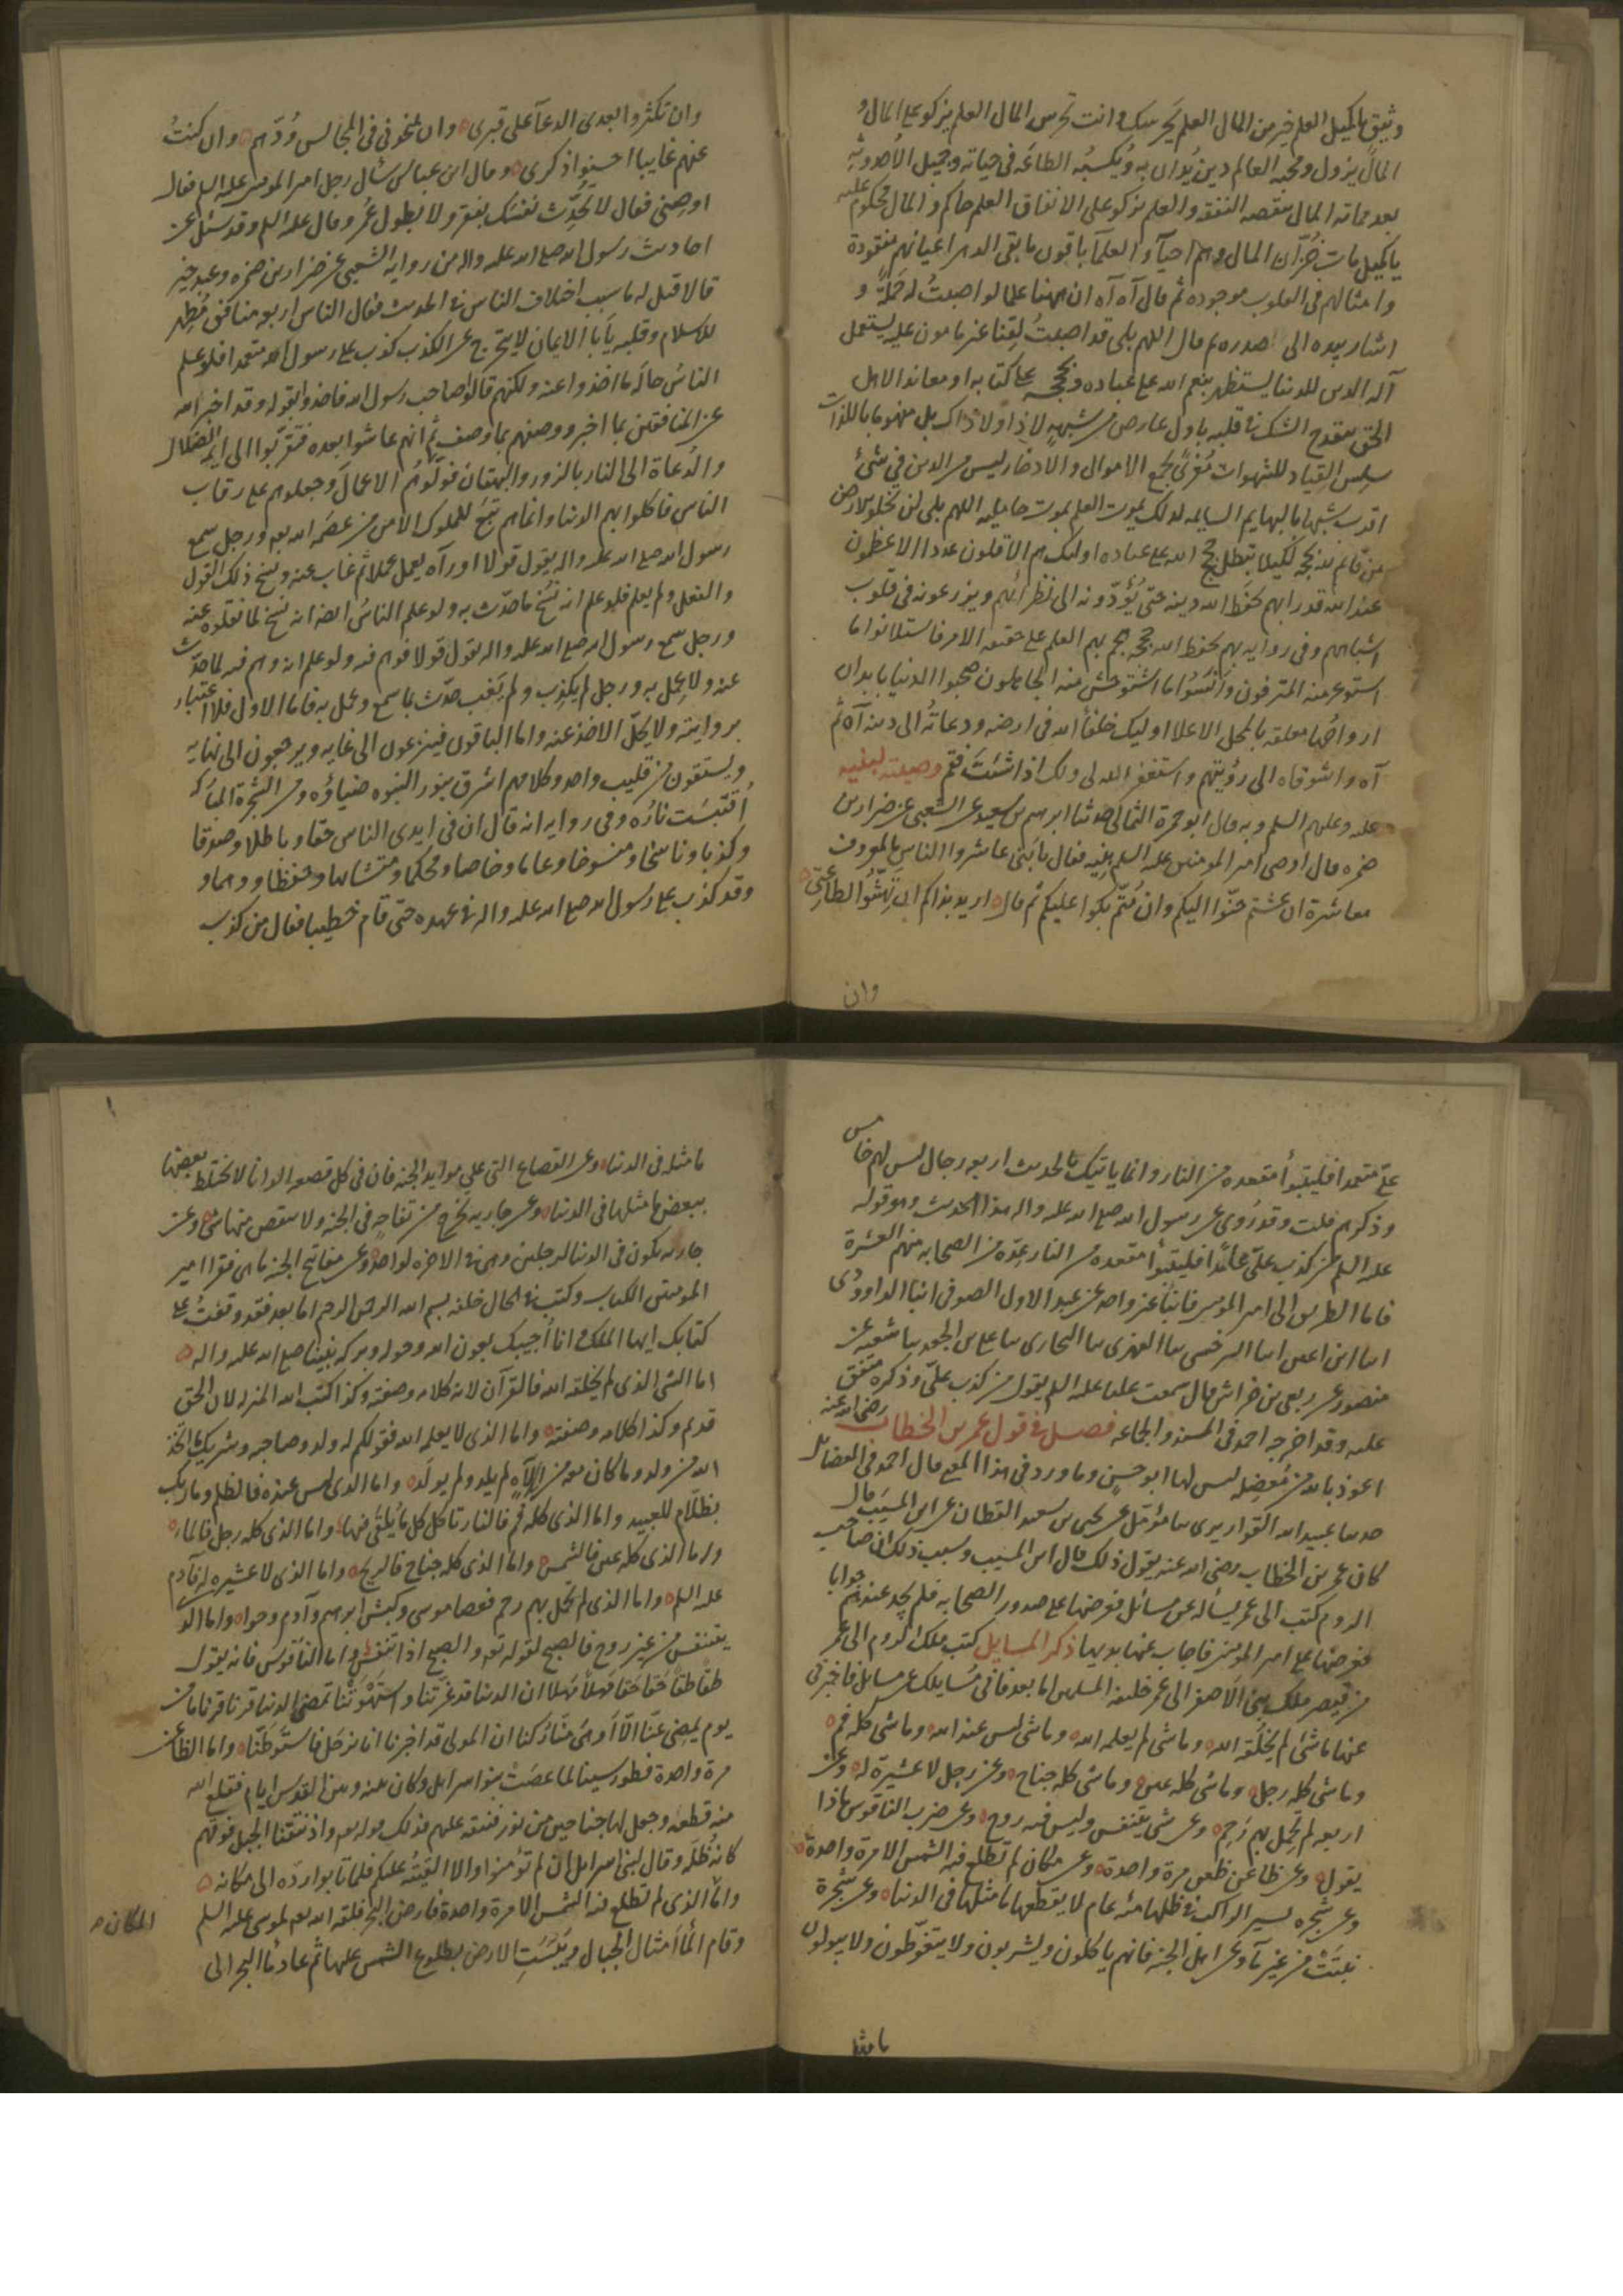 وثيق يا كميل العلم خير من المال العلم يحرسك وانت تحرس المال العلم يزكو على المال و
المال يزول ومحبة العالم دين يُدان به ويُكسبُه الطاعة فى حياته وجميل الأحدوثة
بعد مماته المال تنقصه النفقة والعلم يزكو على الانفاق العلم حاكم والمال محكوم عليه
يا كميل مات خُزّان المال وهم احيآء والعلمآ باقون ما بقى الدهر اعيانهم مفقودة
وامثالهم فى القلوب موجوده ثم قال آه آه ان ههنا علما لو اصبتُ له حَمَلَةً و
اشار بيده الى صدره ثم قال اللهم بلى قد اصبتُ لَقِنا غير مامون عليه يستعمل
آلة الدين للدنيا يستظهر بنعم الله على عباده وبحججه على كتابه او معاند الاهل
الحق ينقدح الشك فى قلبه باول عارض من شبهة لا ذا ولا ذاك بل منهوما باللذات
سلس القياد للشهوات مُغرًى بجمع الاموال والادخار ليس من الدين فى شئ
اقرب شبها بالبهايم السايمه كذلك يموت العلم بموت حامليه اللهم بلى لن تخلو الارض
من قائم لله بحجه لكيلا تبطل حجج الله على عباده اولئك هم الأقلون عددا الاعظمون
عند الله قدرا بهم يحفظ الله دينه حتى يُؤدّونه الى نظرائهم ويزرعونه فى قلوب
اشباههم وفى روايه بهم يحفظ الله حججه هجم بهم العلم على حقيقه الامر فاستلانوا ما
استوعر منه المترفون وأنسُوا ما استوحش منه الجاهلون صحبوا الدنيا بابدان
ارواحُها معلقه بالمحل الاعلا اوليك خلفاُ الله فى ارضه ودعاتُه الى دينه آه ثم
آه واشوقاه الى رؤيتهم واستغفر الله لى ولك اذا شئت فقم وصيته لبنيه
عليه وعليهم السلم وبه قال ابو حمزة الثمالى حدثنا ابراهيم بن سعيد عن الشعبى عن ضرار بن
ضمره قال اوصى امير المومنين عليه السلم بنيه فقال يا بَنىّ عاشروا الناس بالمعروف
معاشرة ان عشتم حنّوا اليكم وان مُتّم بكوا عليكم ثم قال اريد بذاكم ان تهشّوا لطلعتى
وان
وان تكثروا بعدى الدعآ على قبرى وان تمنحونى فى المجالس وُدّهم وان كنتُ
عنهم غايبا احسنوا ذكرى وقال ابن عباس سأل رجل امير المومنين عليه السلم فقال
اوصِنى فقال لا تُحدّث نفسك بفقر ولا بطول عُمر وقال عليه السلم وقد سئل عن
احاديث رسول الله صلى الله عليه واله من رواية الشعبى عن ضرار بن ضمره وعبد خير
قالا قيل له ما سبب اختلاف الناس فى الحديث فقال الناس اربعه منافق مُظهِر
للاسلام وقلبه يأبا الايمان لا يتحرّج عن الكذب كذب على رسول الله متعمدا فلو علم
الناسُ حاله ما اخذوا عنه ولكنهم قالوا صاحب رسول الله فاخذوا بقوله وقد اخبر الله
عن المنافقين بما اخبر ووصفهم بما وصف ثم انهم عاشوا بعده فتقرّبوا الى ايمة الضلال
والدُعاة الى النار بالزور والبهتان فولّوهُم الاعمال وجعلوهم على رقاب
الناس فاكلوا بهم الدنيا وانما هم تبَع للملوك الا من عَصَمَه الله بهم ورجل سمع
رسول الله صلى الله عليه واله يقول قولا او رآه يعمل عملا ثم غاب عنه ونسخ ذلك القول
والفعل ولم يعلم فلو علم انه نُسخ ما حدّث به ولو علم الناسُ ايضا انه نسخ لما نقلوه عنه
ورجل سمع رسول الله صلى الله عليه واله يقول قولا فوهم فيه ولو علم انه وهم فيه لما حدّث
عنه ولا عَمِل به ورجل لم يكذب ولم يَغب حدّث بما سمع وعمل به فاما الاول فلا اعتبار
بروايته ولا يحلّ الاخذ عنه واما الباقون فينزعون الى غايه ويرجعون الى نهايه
ويستقون من قليب واحد وكلامهم اشرق بنور النبوه ضياؤه ومن الشجرة المباركه
اُقتُبسَت نارُه وفى روايه انه قال ان فى ايدى الناس حقا وباطلا وصدقا
وكذبا وناسخا ومنسوخا وعاما وخاصا ومحكما ومتشابها وحفظا ووهما و
وقد كذب على رسول الله صلى الله عليه واله فى عهده حتى قام خطيبا فقال من كذب
علىّ متعمدا فليتبوأ مقعده من النار وانما ياتيك بالحديث اربعه رجال ليس لهم خامس
وذكرهم قلت وقد رُوى عن رسول الله صلى الله عليه واله هذا الحديث وهو قوله
عليه السلم من كذب علىّ عامدا فليتبوأ مقعده من النار عدّة من الصحابه منهم العشرة
فاما الطريق الى امير المومنين فانبأنا غير واحد عن عبد الاول الصوفى انبا الداوودى
ابنا ابن اعين ابنا السرخسى ثنا الفربرى ثنا البخارى ثنا على بن الجعد ثنا شعبه عن
منصور عن ربعى بن خراش قال سمعت عليا عليه السلم يقول من كذب علىّ وذكره متفق
عليه وقد اخرجه احمد فى المسند والجماعه فصل فى قول عمر بن الخطاب رضى الله عنه
اعوذ بالله من مُعضِله ليس لها ابو حسن وما ورد فى هذا المعنى قال احمد فى الفضائل
حدثنا عبيد الله القواريرى ثنا مؤمّل عن يحيى بن سعيد القطان عن ابن المسيّب قال
كان عمر بن الخطاب رضى الله عنه يقول ذلك قال ابن المسيب وسبب ذلك ان صاحب
الروم كتب الى عمر يسأله عن مسائل فعرضها على صدور الصحابه فلم يجد عندهم جوابا
فعرضها على امير المومنين فاجاب عنها بديها ذكر المسايل كتب ملك الروم الى عمر
من قيصر ملك بنى الاصفر الى عمر خليفة المسلمين اما بعد فانى مُسايلك عن مسائل فاخبرنى
عنها ما شئ لم يخلُقه الله وما شئ لم يعلمه الله وما شى ليس عند الله وما شى كله فم
وما شى كله رجل وما شى كله عين وما شى كله جناح وعن رجل لا عشيرة له وعن
اربعه لم تحمل بهم رَحِم وعن شى يتنفس وليس فيه روح وعن ضرب الناقوس ماذا
يقول وعن ظاعن ظعن مرة واحدة وعن مكان لم تطلع فيه الشمس الا مرة واحدة
وعن شجره يسير الراكب فى ظلها مئه عام لا يقطعها ما مثلها فى الدنيا وعن شجرة
نبتَتْ من غير مآ وعن اهل الجنه فانهم ياكلون ويشربون ولا يتغوّطون ولا يبولون
ما مثل
ما مثله فى الدنيا وعن القصاع التى على موايد الجنه فان فى كل قصعه الوانا لا يختلط بعضها
ببعض ما مثلها فى الدنيا وعن جاريه تخرج من تفاحه فى الجنه ولا ينقص منها شئ وعن
جاريه تكون فى الدنيا لرجلين وهى فى الاخره لواحد وعن مفاتيح الجنه ما هى فقرا امير
المومنين الكتاب وكتب فى الحال خلفه بسم الله الرحمن الرحيم اما بعد فقد وقفتُ على
كتابك ايها الملك وانا اُجيبك بعون الله وحوله وبركة نبينا صلى الله عليه واله
اما الشى الذى لم يخلقه الله فالقرآن لانه كلامه وصفته وكذا كتب الله المنزله لان الحق
قديم وكذا كلامه وصفته واما الذى لا يعلمه الله فقولكم له ولد وصاحبه وشريك ما اتخذ
الله من ولد وما كان معه من اِلآهٍ لم يلد ولم يولَد واما الذى ليس عنده فالظلم وما ربك
بظلّام للعبيد واما الذى كله فم فالنار تاكل كل ما يُلقى فيها واما الذى كله رجل فالماء
واما الذى كله عين فالشمس واما الذى كله جناح فالريح واما الذى لا عشيره له فآدم
عليه السلم واما الذى لم تحمل بهم رحم فعصا موسى وكبش ابرهيم وآدم وحوا واما الذى
يتنفس من غير روح فالصبح لقوله تعالى والصبح اذا تنفس واما الناقوس فانه يقول
طقا طقا حَقا حَقا مَهلاً مَهلا ان الدنيا قد غرّتنا واستهوَتْنا تمضى الدنيا قرنا قرنا ما من
يوم يمضى عنّا الّا اَوهَى مِنّا رُكنا ان المولى قد اخبرنا انا نرحَل فاستَوطَنّا واما الظاعن
مرة واحدة فطور سينا لما عصَتْ بنو اسرايل وكان بينه وبين القدس ايام فقلع الله
منه قطعه وجعل لها جناحين من نور فنتقه عليهم فذلك قوله تعالى واذ نتقنا الجبل فوقهم
كانه ظلّة وقال لبنى اسرايل ان لم تؤمنوا والا القيتُه عليكم فلما تابوا ردّه الى مكانه
واما الذى لم تطلع فيه الشمس الا مرة واحدة فارض البحر فلقه الله تعالى لموسى عليه السلم
المكان
وقام المآ امثال الجبال ويَبِسَتِ الارض بطلوع الشمس عليها ثم عاد مآ البحر الى